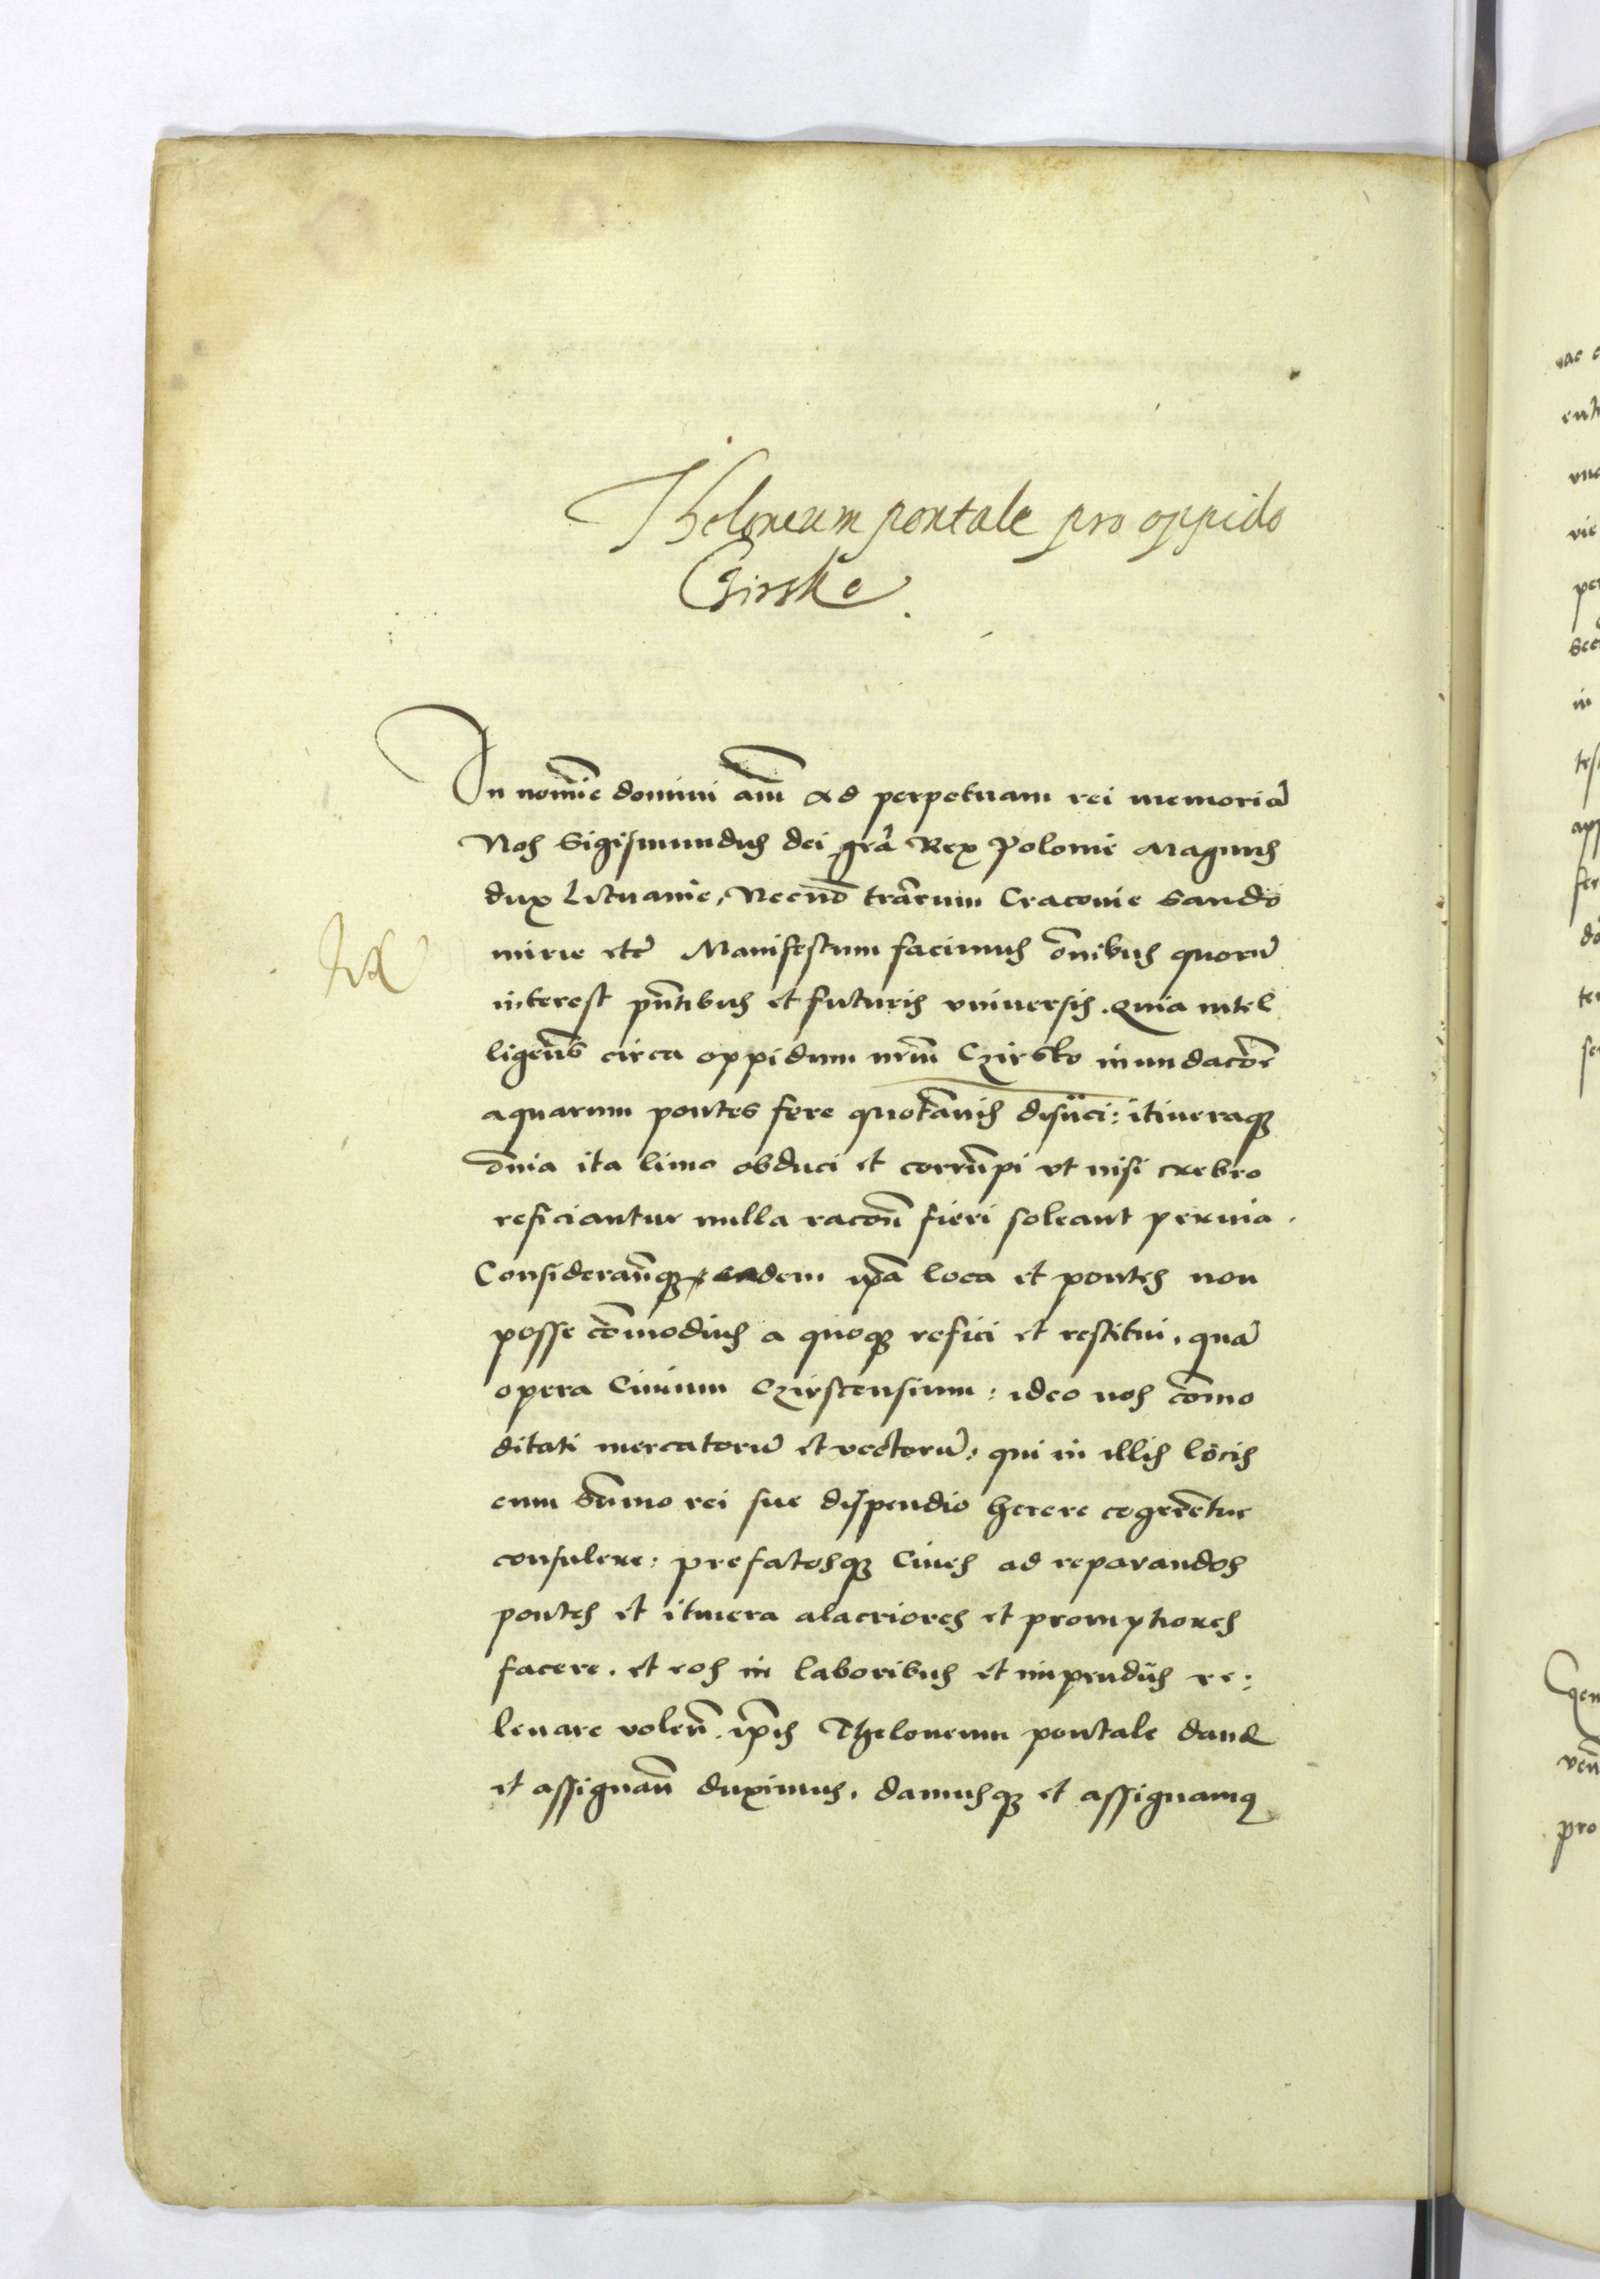 Theloneum pontale pro oppido
Czirsko
In nomi͞e domini am̅ Ad perpetuam rei memoriā
Nos Sigismundus dei gr̅a Rex Polonie Magnus
dux Lituanie, Necno͞ tr̅arum Cracouie Sando
mirie etc̅ Manifestum facimus o̅nibus quorū
interest pn̅tibus et futuris vniuersis. Quia intel
ligen̅s circa oppidum nrm̅ Czirsko inundaco̅e
aquarum pontes fere quota̅nis disiici: itineraq₃
om̅ia ita limo obduci et corru̅pi vt nisi crebro
reficiantur nulla raco̅n fieri soleant peruia.
Consideran̅q₃ eadem ip̅a loca et pontes non
posse co̅modius a quoq₃ refici et restitui, quā
opera Ciuium Czirscensium: ideo nos co̅mo
ditati mercatorū et vectorū: qui in illis locis
cum su̅mo rei sue dispendio herere cogere̅tur
consulere: prefatosq₃ Ciues ad reparandos
pontes et itinera alacriores et promptiores
facere. et eos in laboribus et impendiis re:
leuare volen̅. ip̅is Theloneum pontale dand
et assignan̅ duximus, damusq₃ et assignamꝯ
vac
pro